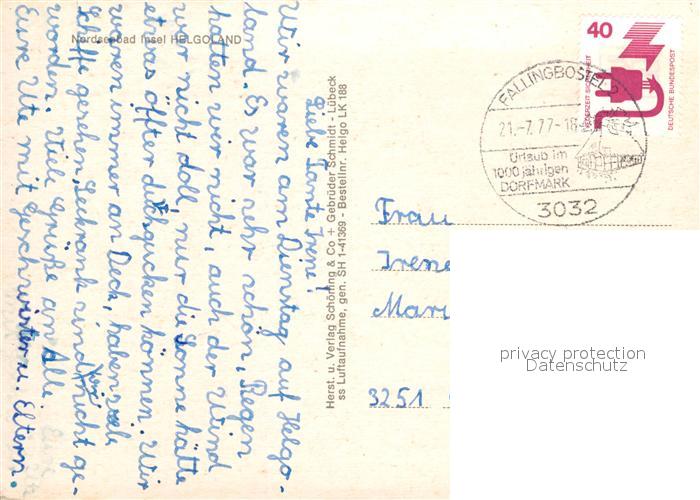 Nordseebad Insel HELGOLAND
Liebe Tante Irene!
Wir waren am Dienstag auf Helgo-
land. Es war sehr schön, Regen
hatten wir nicht, auch der Wind
war nicht doll, nur die Sonne hätte
etwas öfter durchgucken können. Wir
waren immer an Deck, haben viele
Schiffe gesehen. Seekrank sind wir nicht ge-
worden. Viele Grüße an Alle.
Eure Ute mit Geschwistern u. Eltern.
Herst. u. Verlag Schöning & Co + Gebrüder Schmidt - Lübeck
ss Luftaufnahme, gen. SH 1-41369 - Bestellnr. Helgo LK 188
40
JEDERZEIT SICHERHEIT
DEUTSCHE BUNDESPOST
FALLINGBOSTEL 2
21.-7.77-18
Urlaub im
1000 jährigen
DORFMARK
3032
Frau
Irene
Mari
3251
privacy protection
Datenschutz